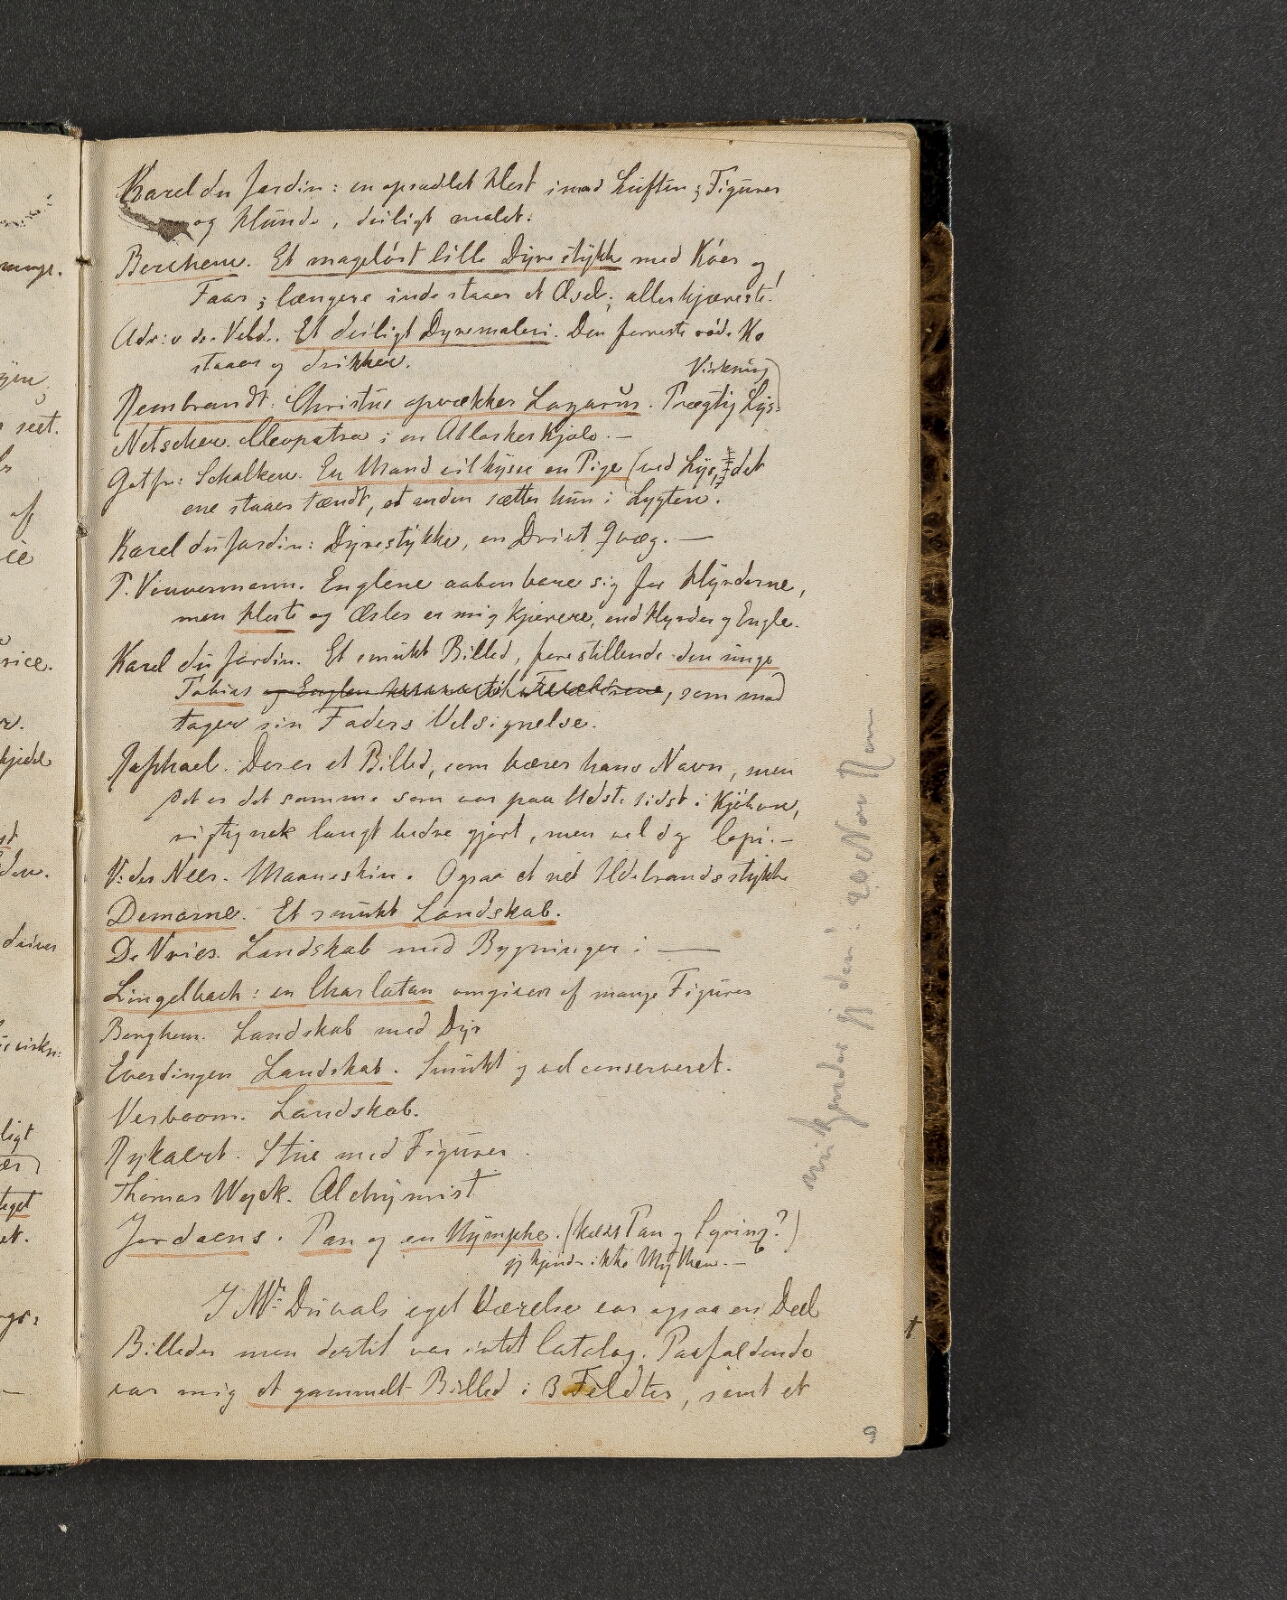 Karel du Jardin: en opsadlet Hest imod Luften; Figurer
og Hunde, deiligt malet.
Berchem. Et mageløst lille Dyrestykke med Køer og
Faar; længere inde staaer et Æsel; allerkjæreste!
Adr: v de. Veld.. Et deiligt Dyremaleri. Den forreste røde Ko
staaer og drikker.
Virkning
Rembrandt. Christus opvækker Lazarus. Prægtig Lys-
Netscher. Cleopatra i en Atlaskes Kjole. —
Gotfr: Schalken. En Mand vil kysse en Pige (ved Lys, det
ene staaer tændt, et anden sætter hun i Lygten.
Karel du Jardin: Dyrestykke, en Drivt Qvæg. —
P. Vouvermann. Englene aabenbare sig for Hyrderne,
men Heste og Æsler er mig kjærere, end Hyrder og Engle.
Karel du Jardin. Et smukt Billed, forestillende den unge
Tobias og Englen, som mod
tager sin Faders Velsignelse.
Raphael. Der er et Billed, som bærer hans Navn, men
det er det samme som var paa Udst. sidst i Kjøbhvn,
rigtignok langt bedre gjort, men vel dog Copi. —
V: der Neer. Maaneskin. Ogsaa et ved Ildebrandsstykke
Demarne. Et smukt Landskab.
De Vries. Landskab med Bygninger i —
Lingelbach: en Charlatan omgiven af mange Figurer
Berghem. Landskab med Dyr
Everdingen Landskab. Smukt og vel conserveret.
Verboom. Landskab.
Rykaert. Stue med Figurer.
Thomas Wyck. Alchymist
Jordaens. Pan og en Nymphe. (heldst Pan og Syrinx?)
jeg kjender ikke Mythen. —
I Mr: Duvals eget Værelse var ogsaa en Deel
Billeder men dertil var intet Catalog. Paafaldende
var mig et gammelt Billed i 3 Feldter, samt et
9